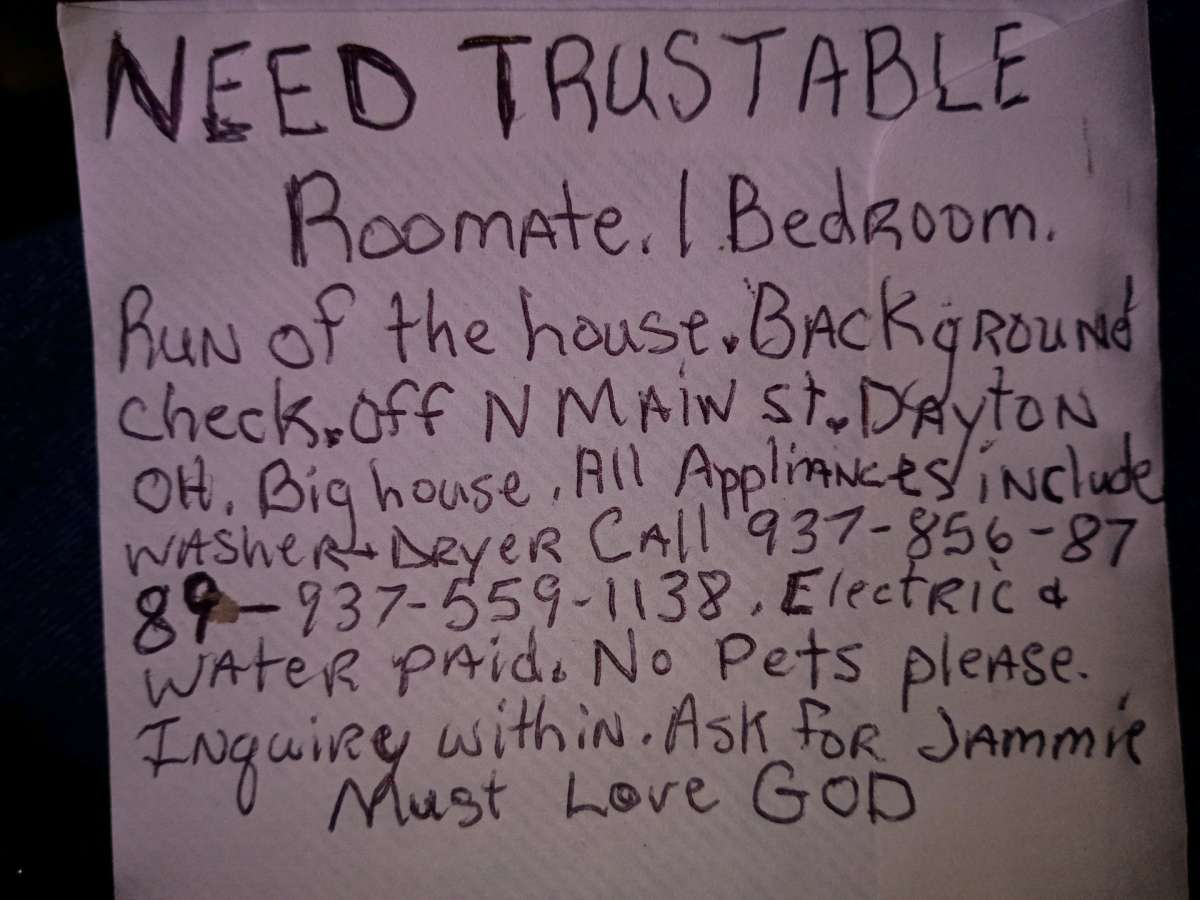 NEED TRUSTABLE
Roomate. 1 Bedroom.
Run of the house. Background
check. Off N Main st. Dayton
OH. Big house. All Appliances include
Washer + Dryer Call 937-856-87
89 - 937-559-1138. Electric &
Water paid. No Pets please.
Inquirey within. Ask for Jammie
Must Love GOD